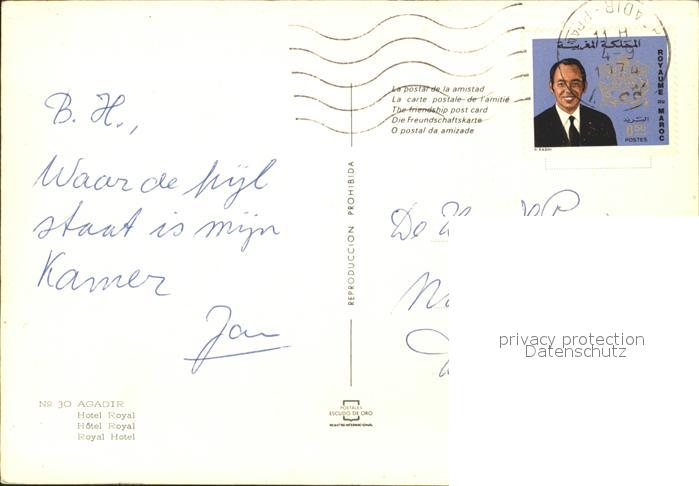 B. H.,
Waar de pijl
staat is mijn
Kamer
Jan
Nº 30 AGADIR
Hotel Royal
Hôtel Royal
Royal Hotel
REPRODUCCION PROHIBIDA
POSTALES
ESCUDO DE ORO
La postal de la amistad
La carte postale de l'amitié
The friendship post card
Die Freundschaftskarte
O postal da amizade
المملكة المغربية
ROYAUME DU MAROC
البريد
0,50
POSTES
11 H
4-9
De
privacy protection
Datenschutz